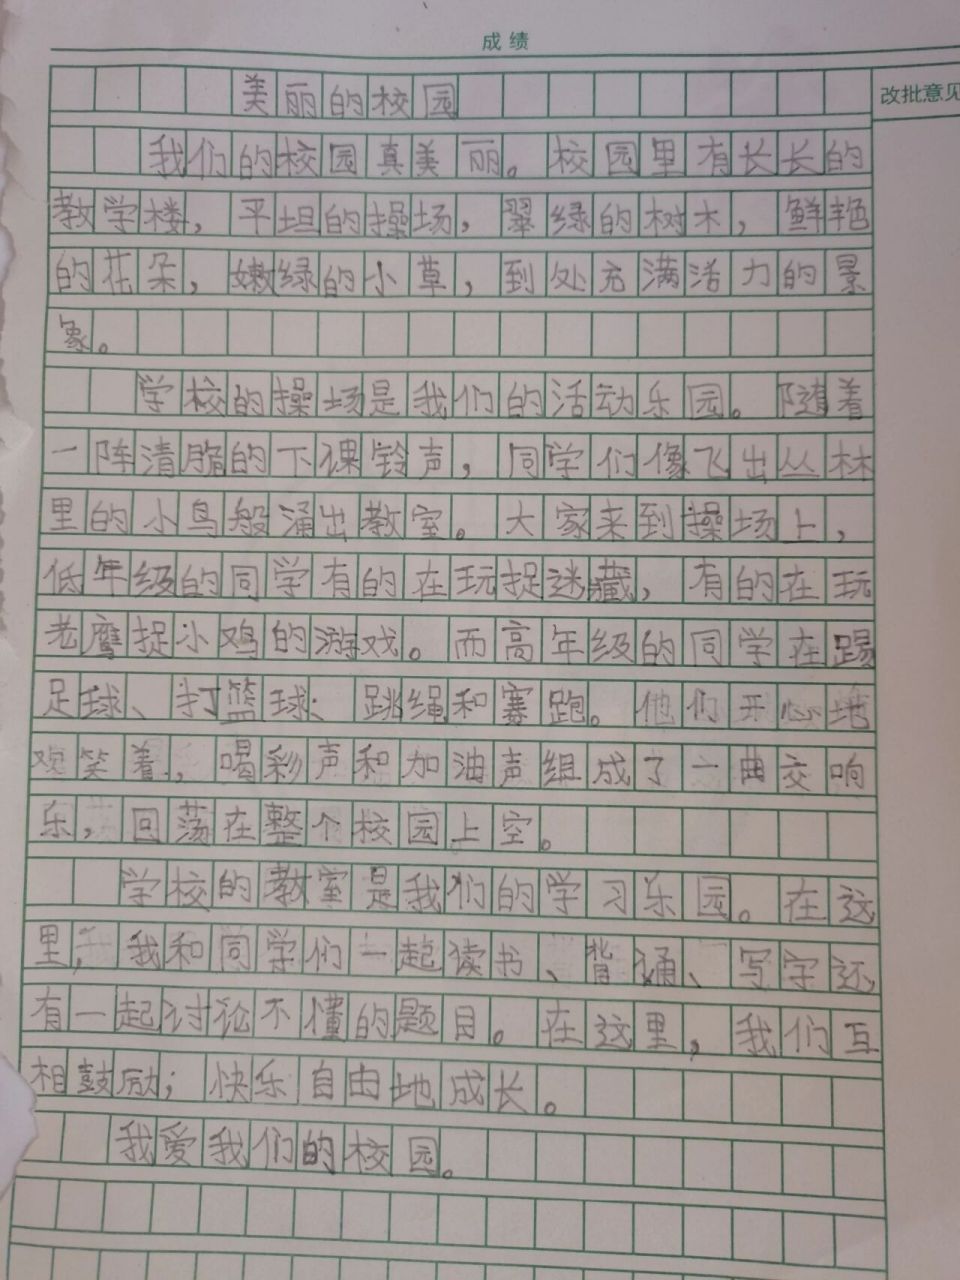 成绩
改批意见
美丽的校园
我们的校园真美丽。校园里有长长的
教学楼，平坦的操场，翠绿的树木，鲜艳
的花朵，嫩绿的小草，到处充满活力的景
象。
学校的操场是我们的活动乐园。随着
一阵清脆的下课铃声，同学们像飞出丛林
里的小鸟般涌出教室。大家来到操场上，
低年级的同学有的在玩捉迷藏，有的在玩
老鹰捉小鸡的游戏。而高年级的同学在踢
足球、打篮球、跳绳和赛跑。他们开心地
欢笑着，喝彩声和加油声组成了一曲交响
乐，回荡在整个校园上空。
学校的教室是我们的学习乐园。在这
里，我和同学们一起读书、背诵、写字还
有一起讨论不懂的题目。在这里，我们互
相鼓励；快乐自由地成长。
我爱我们的校园。